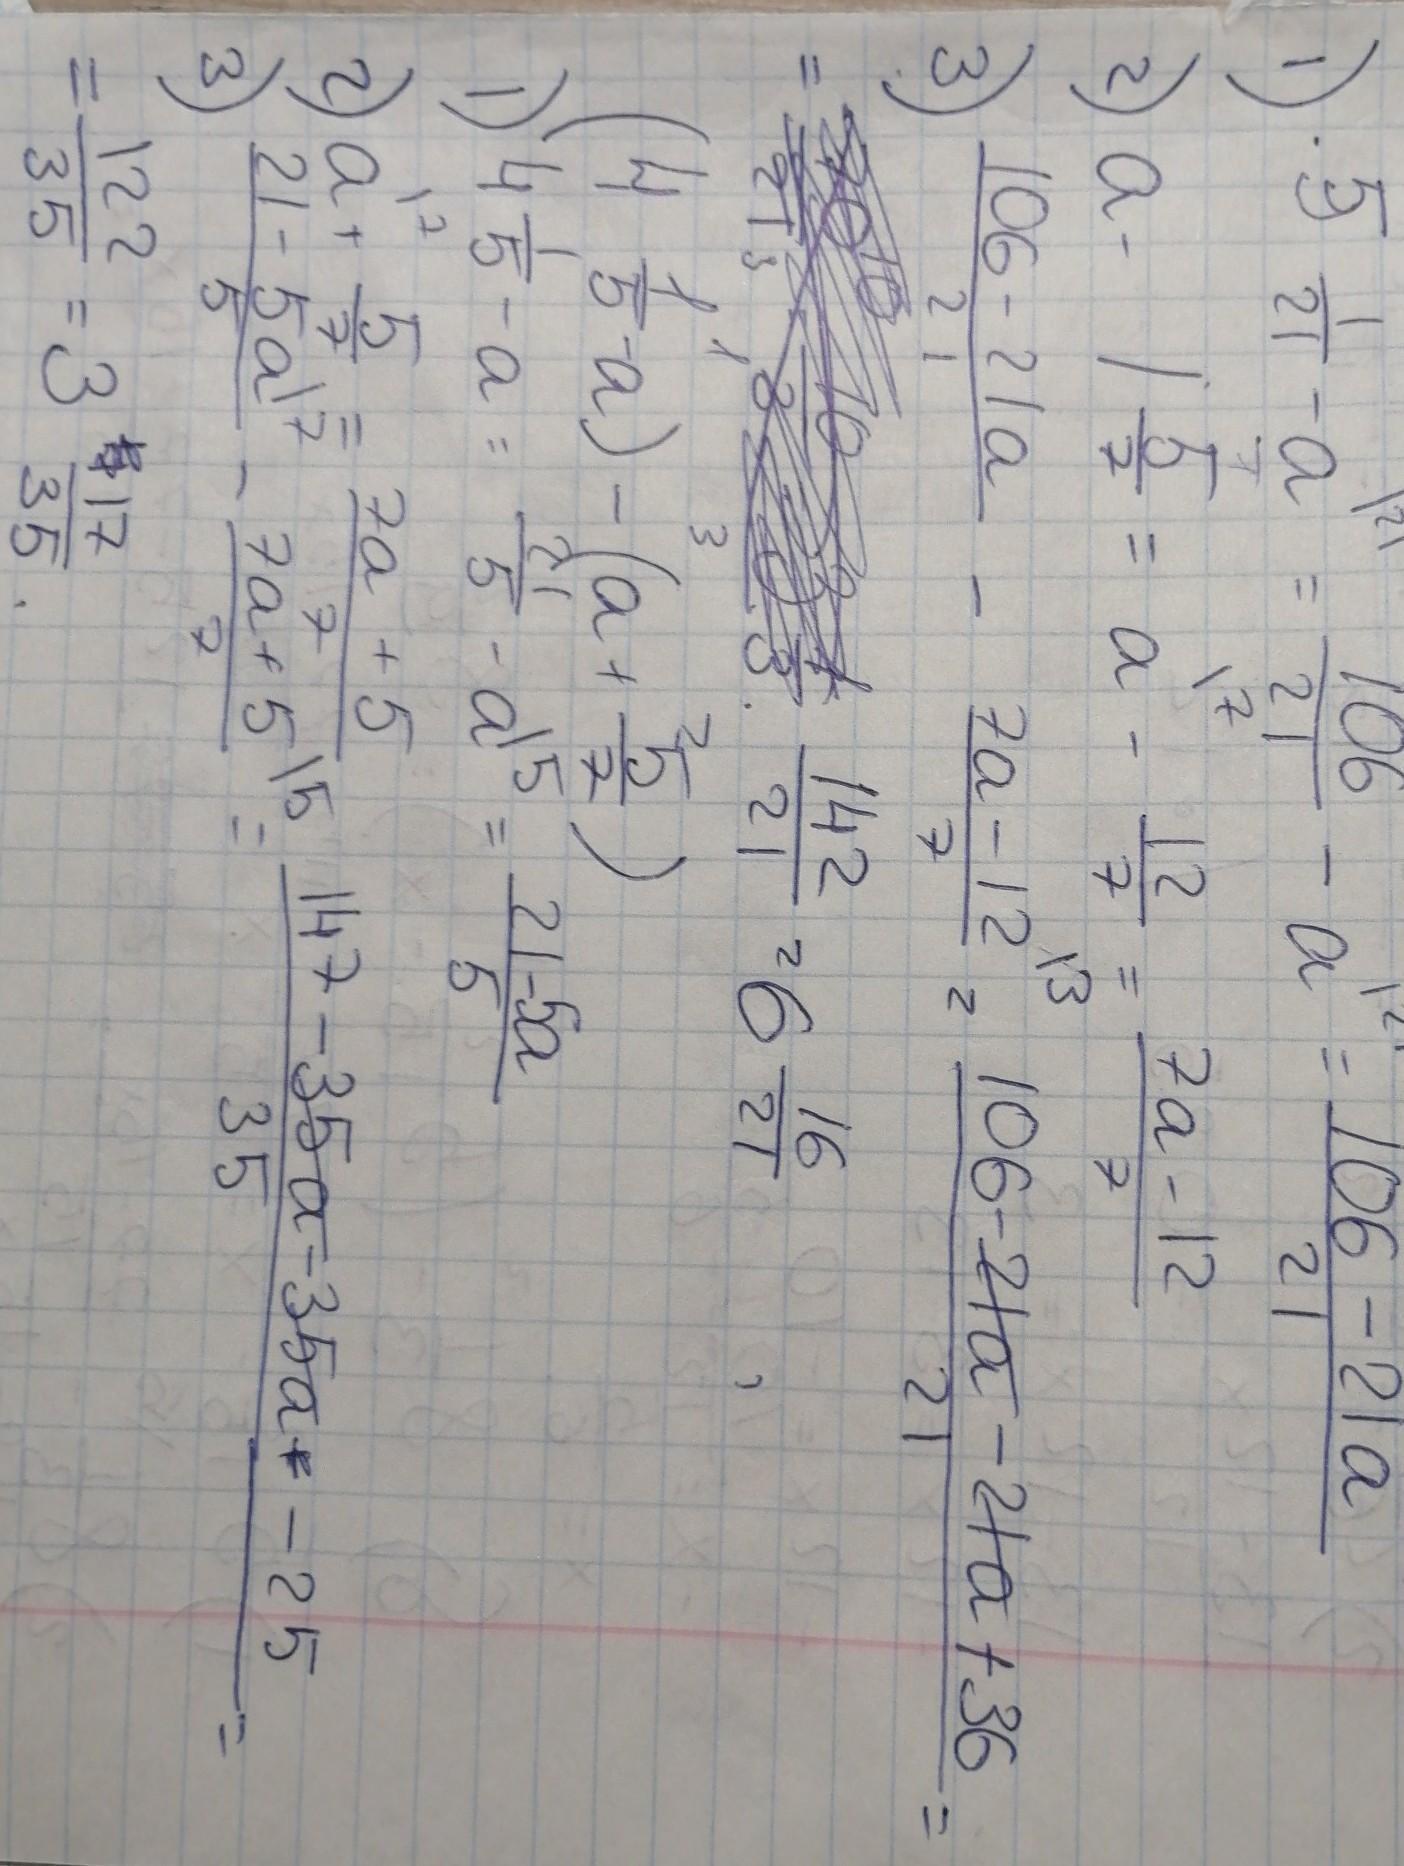 1) 5 1/21 - a \21 = 106/21 - a \21 = 106 - 21a/21
2) a - 1 5/7 = a \7 - 12/7 = 7a - 12/7
3) 106 - 21a/21 - 7a - 12/7 \3 = 106 - 21a - 21a + 36/21 =
= 142/21 = 6 16/21
(4 1/5 - a) - (a + 5/7)
1) 4 1/5 - a = 21/5 - a \5 = 21 - 5a/5
2) a \7 + 5/7 = 7a + 5/7
3) 21 - 5a/5 \7 - 7a + 5/7 \5 = 147 - 35a - 35a - 25/35 =
= 122/35 = 3 17/35.